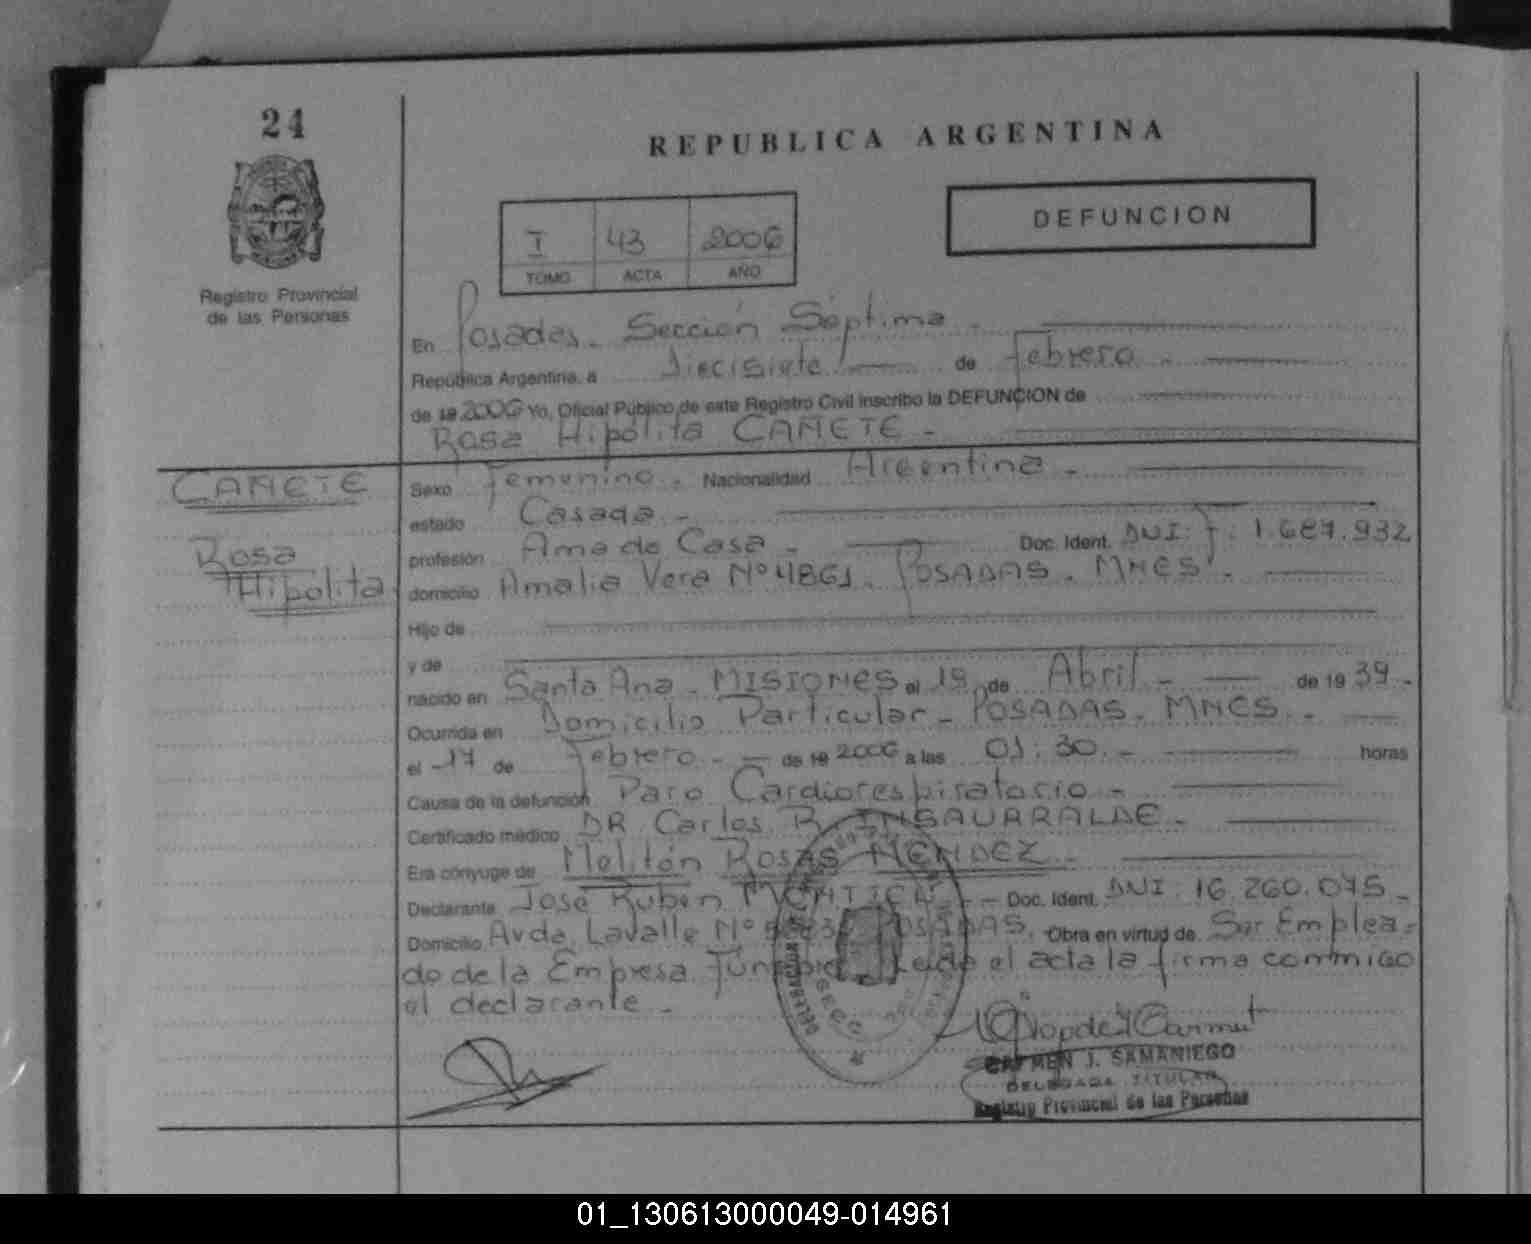 24
Registro Provincial
de las Personas
REPUBLICA ARGENTINA
I 43 2006
TOMO ACTA AÑO
DEFUNCION
En Posadas. Sección Séptima.
República Argentina, a diecisiete de Febrero.
de 19 2006 Yo, Oficial Público de este Registro Civil inscribo la DEFUNCION de
Rosa Hipólita CAÑETE.
CAÑETE
Rosa
Hipólita
Sexo Femenino. Nacionalidad Argentina.
estado Casada.
profesión Ama de Casa Doc. Ident. DNI: F: 1.687.932
domicilio Amalia Vera Nº 4861. POSADAS. MNES.
Hijo de
y de
nacido en Santa Ana. MISIONES el 19 de Abril de 19 39.
Ocurrida en Domicilio Particular. POSADAS. MNES.
el 17 de Febrero. de 19 2006 a las 01:30. horas
Causa de la defunción Paro Cardiorespiratorio.
Certificado médico DR Carlos R. INSAURRALDE.
Era cónyuge de Melitón Rosas MENDEZ
Declarante José Rubén Doc. Ident. DNI: 16.260.075.
Domicilio Avda. Lavalle Nº POSADAS. Obra en virtud de Ser Emplea=
do de la Empresa el acta la firma conmigo
el declarante.
CARMEN J. SAMANIEGO
DELEGADA TITULAR
Registro Provincial de las Personas
01_130613000049-014961